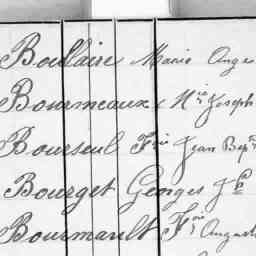 Boullaire Marie Ange
Bourmeaux Mie Joseph
Bourseul Fois Jean Bapt
Bourget Georges Jh
Bourmault Fois August